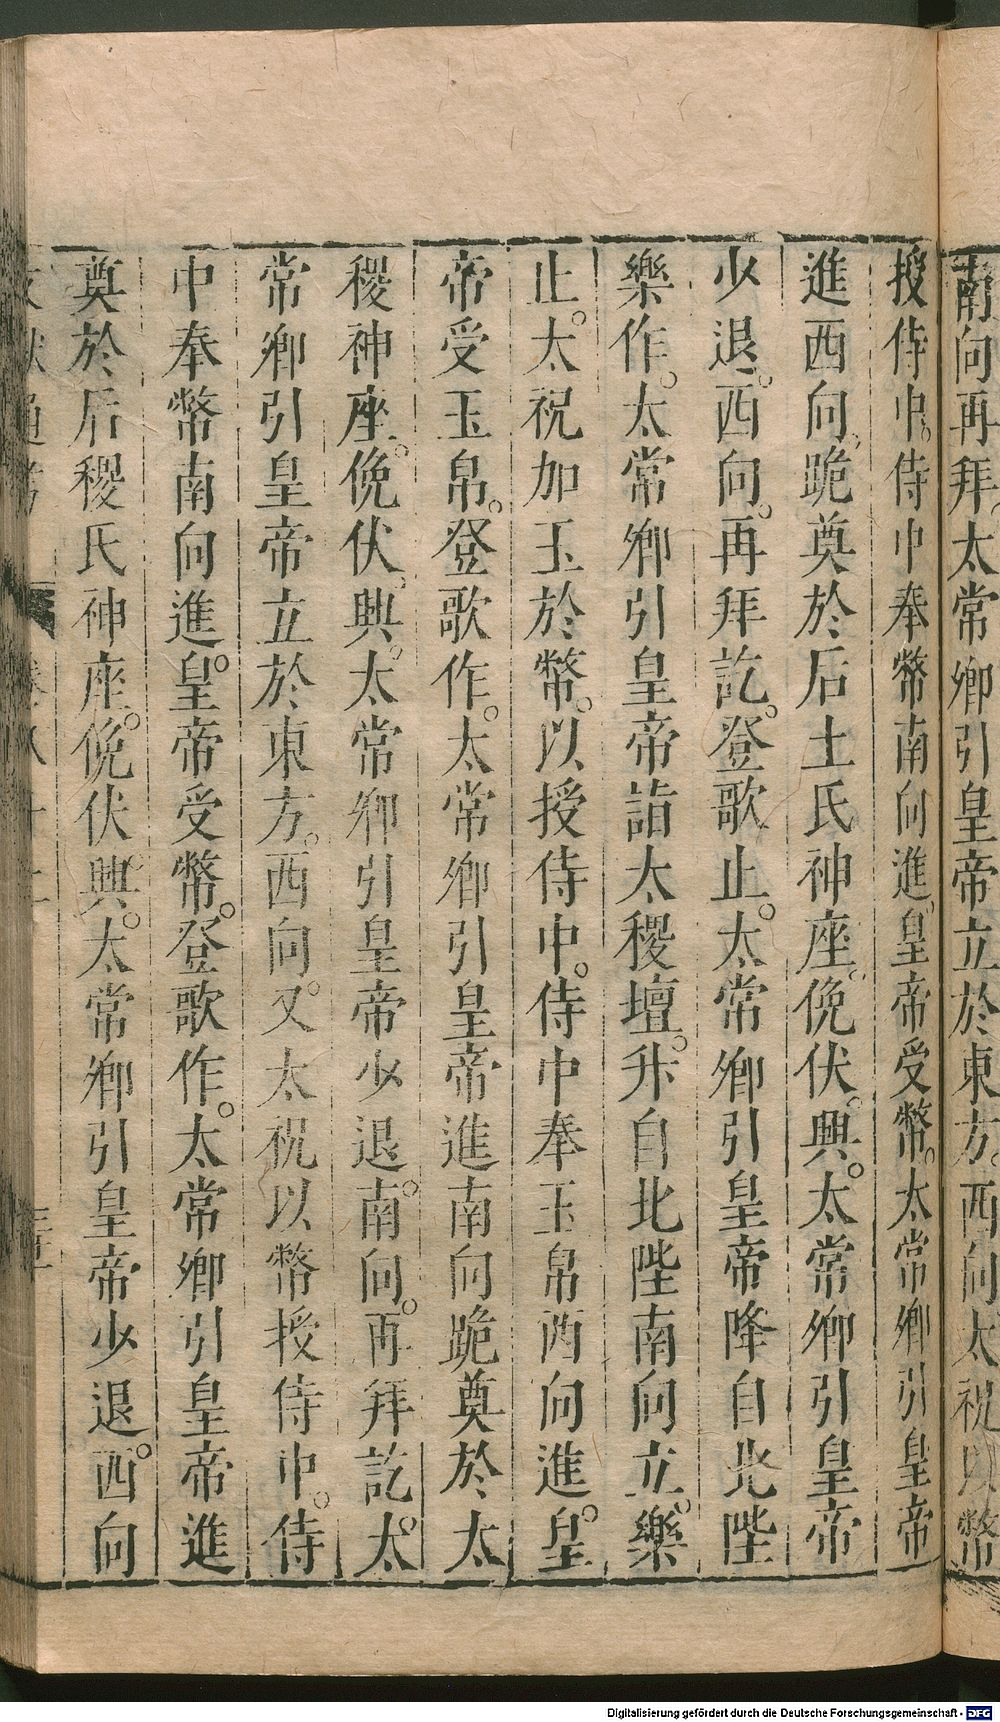 南向再拜。太常卿引皇帝立於東方。西向太祝以幣
授侍中。侍中奉幣南向進。皇帝受幣。太常卿引皇帝
進西向。跪奠於后土氏神座。俛伏。興。太常卿引皇帝
少退。西向。再拜訖。登歌止。太常卿引皇帝降自北陛
樂作。太常卿引皇帝詣太稷壇。升自北陛南向立。樂
止。太祝加玉於幣。以授侍中。侍中奉玉帛西向進。皇
帝受玉帛。登歌作。太常卿引皇帝進南向跪奠於太
稷神座。俛伏。興。太常卿引皇帝少退。南向。再拜訖。太
常卿引皇帝立於東方。西向。又太祝以幣授侍中。侍
中奉幣南向進。皇帝受幣。登歌作。太常卿引皇帝進
奠於后稷氏神座。俛伏興。太常卿引皇帝少退。西向
Digitalisierung gefördert durch die Deutsche Forschungsgemeinschaft - DFG